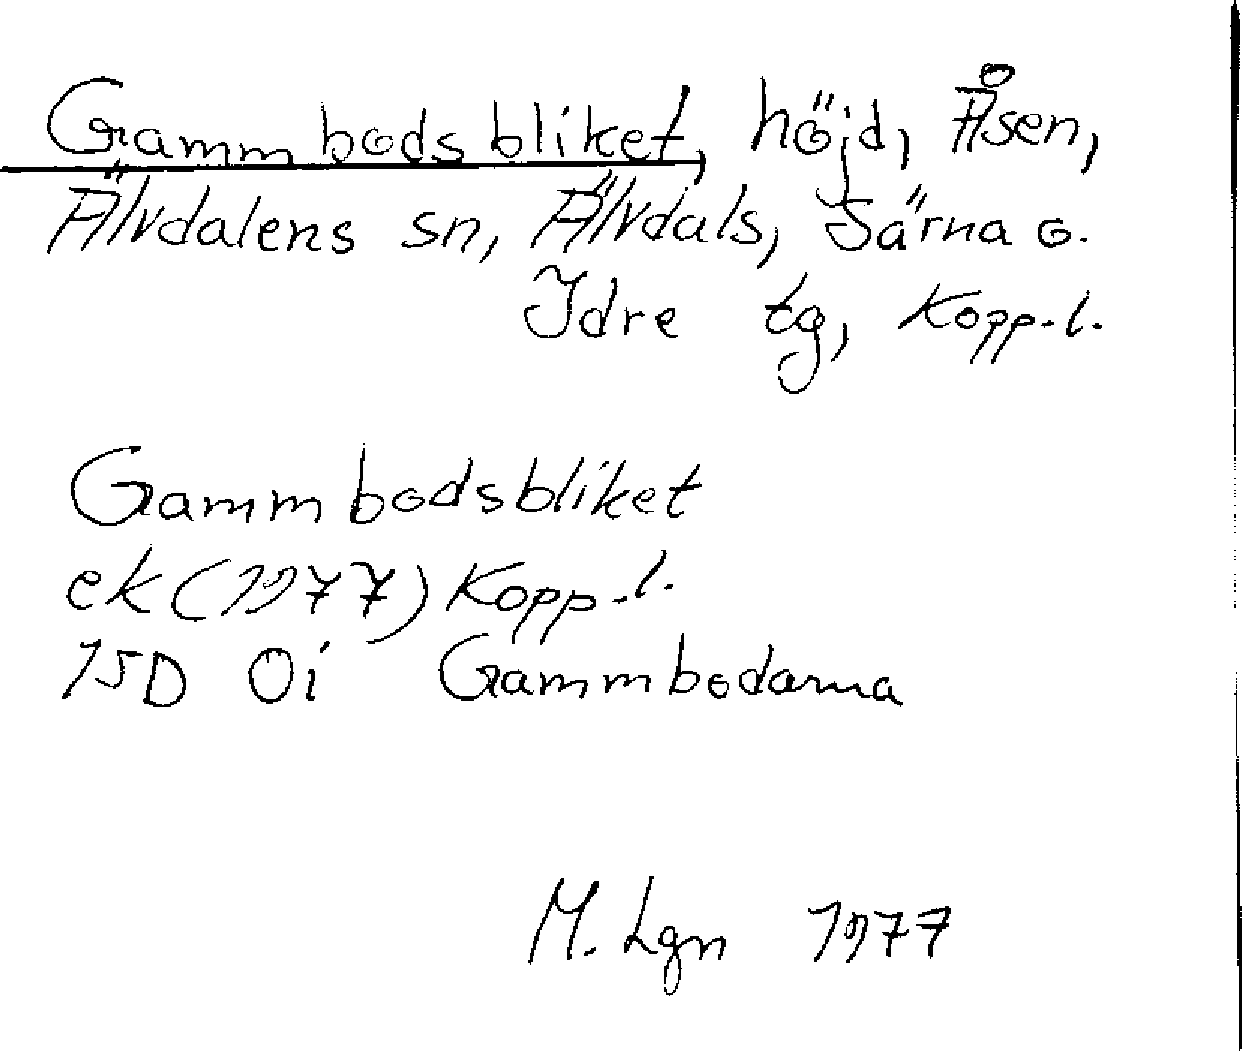 Gammbodsbliket, höjd, Åsen,
Älvdalens sn, Älvdals, Särna o.
Idre tg, Kopp.l.
Gammbodsbliket
ek (1977) Kopp.l.
15D 0i Gammbodarna
M. Lgn 1977